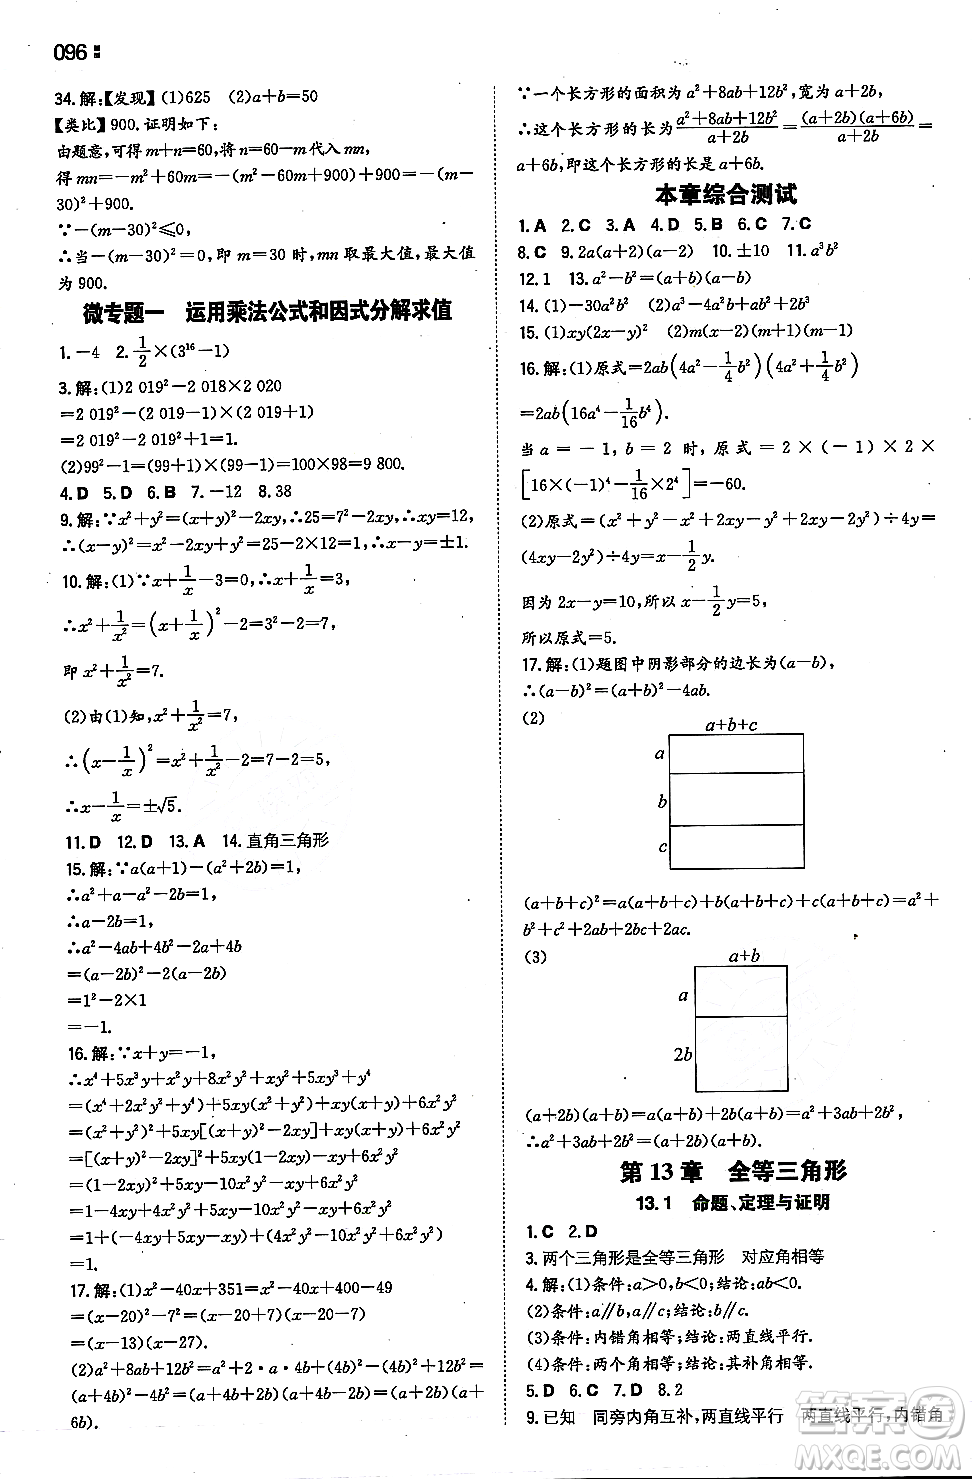 096
34.解:【发现】(1)625　(2)a+b=50
【类比】900.证明如下:
由题意,可得m+n=60,将n=60-m代入mn,
得mn=-m²+60m=-(m²-60m+900)+900=-(m-
30)²+900.
∵-(m-30)²≤0,
∴当-(m-30)²=0,即m=30时,mn取最大值,最大值
为900.
微专题一　运用乘法公式和因式分解求值
1.-4　2.1/2×(3¹⁶-1)
3.解:(1)2 019²-2 018×2 020
=2 019²-(2 019-1)×(2 019+1)
=2 019²-2 019²+1=1.
(2)99²-1=(99+1)×(99-1)=100×98=9 800.
4.D　5.D　6.B　7.-12　8.38
9.解:∵x²+y²=(x+y)²-2xy,∴25=7²-2xy,∴xy=12,
∴(x-y)²=x²-2xy+y²=25-2×12=1,∴x-y=±1.
10.解:(1)∵x+1/x-3=0,∴x+1/x=3,
∴x²+1/x²=(x+1/x)²-2=3²-2=7,
即x²+1/x²=7.
(2)由(1)知,x²+1/x²=7,
∴(x-1/x)²=x²+1/x²-2=7-2=5,
∴x-1/x=±√5.
11.D　12.D　13.A　14.直角三角形
15.解:∵a(a+1)-(a²+2b)=1,
∴a²+a-a²-2b=1,
∴a-2b=1,
∴a²-4ab+4b²-2a+4b
=(a-2b)²-2(a-2b)
=1²-2×1
=-1.
16.解:∵x+y=-1,
∴x⁴+5x³y+x²y+8x²y²+xy²+5xy³+y⁴
=(x⁴+2x²y²+y⁴)+5xy(x²+y²)+xy(x+y)+6x²y²
=(x²+y²)²+5xy[(x+y)²-2xy]+xy(x+y)+6x²y²
=[(x+y)²-2xy]²+5xy(1-2xy)-xy+6x²y²
=(1-2xy)²+5xy-10x²y²-xy+6x²y²
=1-4xy+4x²y²+5xy-10x²y²-xy+6x²y²
=1+(-4xy+5xy-xy)+(4x²y²-10x²y²+6x²y²)
=1.
17.解:(1)x²-40x+351=x²-40x+400-49
=(x-20)²-7²=(x-20+7)(x-20-7)
=(x-13)(x-27).
(2)a²+8ab+12b²=a²+2·a·4b+16b²-4b²=
(a+4b)²-(2b)²=(a+4b+2b)(a+4b-2b)=(a+2b)(a+
6b).
∵一个长方形的面积为a²+8ab+12b²,宽为a+2b,
∴这个长方形的长为(a²+8ab+12b²)/(a+2b)=(a+2b)(a+6b)/(a+2b)=
a+6b,即这个长方形的长是a+6b.
本章综合测试
1.A　2.C　3.A　4.D　5.B　6.C　7.C
8.C　9.2a(a+2)(a-2)　10.±10　11.a³b²
12.1　13.a²-b²=(a+b)(a-b)
14.(1)-30a²b²　(2)a³-4a²b+ab²+2b³
15.(1)xy(2x-y)²　(2)m(x-2)(m+1)(m-1)
16.解:(1)原式=2ab(4a²-1/4b²)(4a²+1/4b²)
=2ab(16a⁴-1/16b⁴).
当a=-1,b=2时,原式=2×(-1)×2×
[16×(-1)⁴-1/16×2⁴]=-60.
(2)原式=(x²+y²-x²+2xy-y²+2xy-2y²)÷4y=
(4xy-2y²)÷4y=x-1/2y.
因为2x-y=10,所以x-1/2y=5,
所以原式=5.
17.解:(1)题图中阴影部分的边长为(a-b),
∴(a-b)²=(a+b)²-4ab.
(2)
a+b+c
a
b
c
(a+b+c)²=a(a+b+c)+b(a+b+c)+c(a+b+c)=a²+
b²+c²+2ab+2bc+2ac.
(3)
a+b
a
2b
(a+2b)(a+b)=a(a+b)+2b(a+b)=a²+3ab+2b²,
∴a²+3ab+2b²=(a+2b)(a+b).
第13章　全等三角形
13.1　命题、定理与证明
1.C　2.D
3.两个三角形是全等三角形　对应角相等
4.解:(1)条件:a>0,b<0;结论:ab<0.
(2)条件:a∥b,a∥c;结论:b∥c.
(3)条件:内错角相等;结论:两直线平行.
(4)条件:两个角相等;结论:其补角相等.
5.D　6.C　7.D　8.2
9.已知　同旁内角互补,两直线平行　两直线平行,内错角
答案圈
MXQE.COM